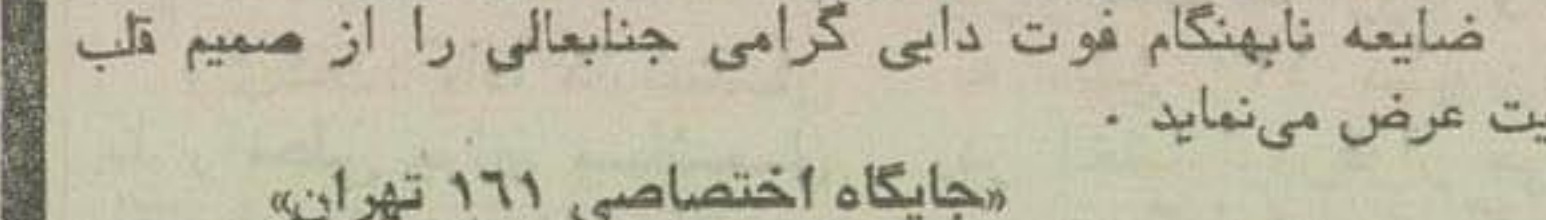 ضایعه نابهنگام فوت دایی گرامی جنابعالی را از صمیم قلب
یت عرض می‌نماید .
«جایگاه اختصاصی ۱۶۱ تهران»